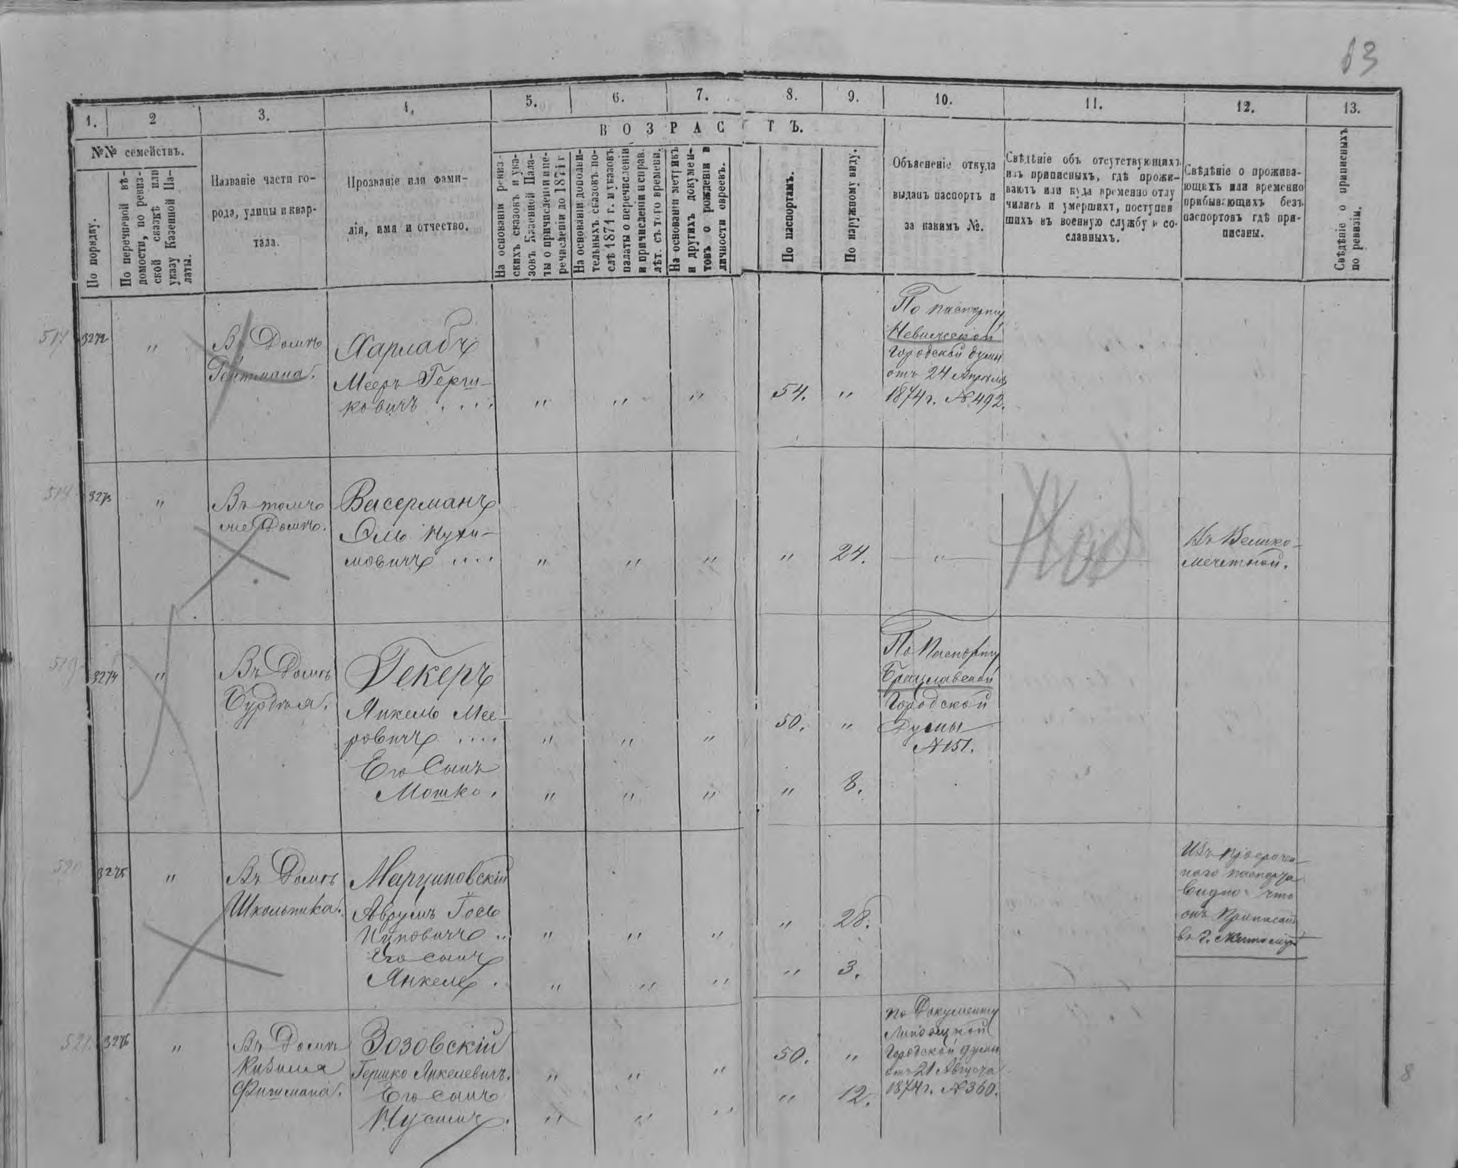 63
1. 2 3. 4. 5. 6. 7. 8. 9. 10. 11. 12. 13.
ВОЗРАСТЪ.
№№ семействъ.
По порядку.
По перечневой вѣ-
домости, по ревиз-
ской сказкѣ или
указу Казенной Па-
латы.
Названіе части го-
рода, улицы и квар-
тала.
Прозваніе или фами-
лія, имя и отчество.
На основаніи ревиз-
скихъ сказокъ и ука-
зовъ Казенной Пала-
ты о причисленіи и пе-
речисленіи до 1871 г
На основаніи дополни-
тельныхъ сказокъ по-
слѣ 1871 г. и указовъ
палаты о перечисленіи
и причисленіи и справ.
лѣт. съ того времени.
На основаніи метрикъ
и другихъ докумен-
товъ о рожденіи и
личности евреевъ.
По паспортамъ.
По наружному виду.
Объясненіе откуда
выданъ паспортъ и
за какимъ №.
Свѣдѣніе объ отсутствующихъ
изъ приписныхъ, гдѣ прожи-
ваютъ или куда временно отлу
чились и умершихъ, поступив
шихъ въ военную службу и со-
сланныхъ.
Свѣдѣніе о прожива-
ющихъ или временно
прибывающихъ безъ
паспортовъ гдѣ при-
писаны.
Свѣдѣніе о приписныхъ
по ревизіи.
517 3272 " Въ Домѣ
Гентмана.
Харлабъ
Мееръ Герш-
ковичъ . . . . " " " 54. "
По паспорту
Городской думы
отъ 24 Апрѣля
1874 г. № 492.
3273 " Въ томъ
же Домѣ.
Васерманъ
Нухи-
мовичъ . . . . " " " " 24. "
Въ Велико-
мечетной.
519 3274 " Въ Домѣ
Гекеръ
Янкель Мее-
ровичъ . . . . " " " 50. "
Его Сынъ
Мошко. " " " " 8.
По Паспорту
Брацлавской
Городской
Думы
№ 151.
3275 " Въ Домѣ
Школьника.
Марциновскій
Аврумъ
Ицковичъ .. " " " " 28.
Его сынъ
Янкель. " " " " 3.
Изъ просрочен-
наго паспорта
видно что
онъ приписан
521. 3276 " Въ Домѣ
Фишмана.
Зозовскій
Гершко Янкелевичъ. " " " 50. "
Его сынъ
Нусимъ. " " " " 12.
по Документу
Городской Думы
отъ 21 Августа
1874 г. № 360.
8